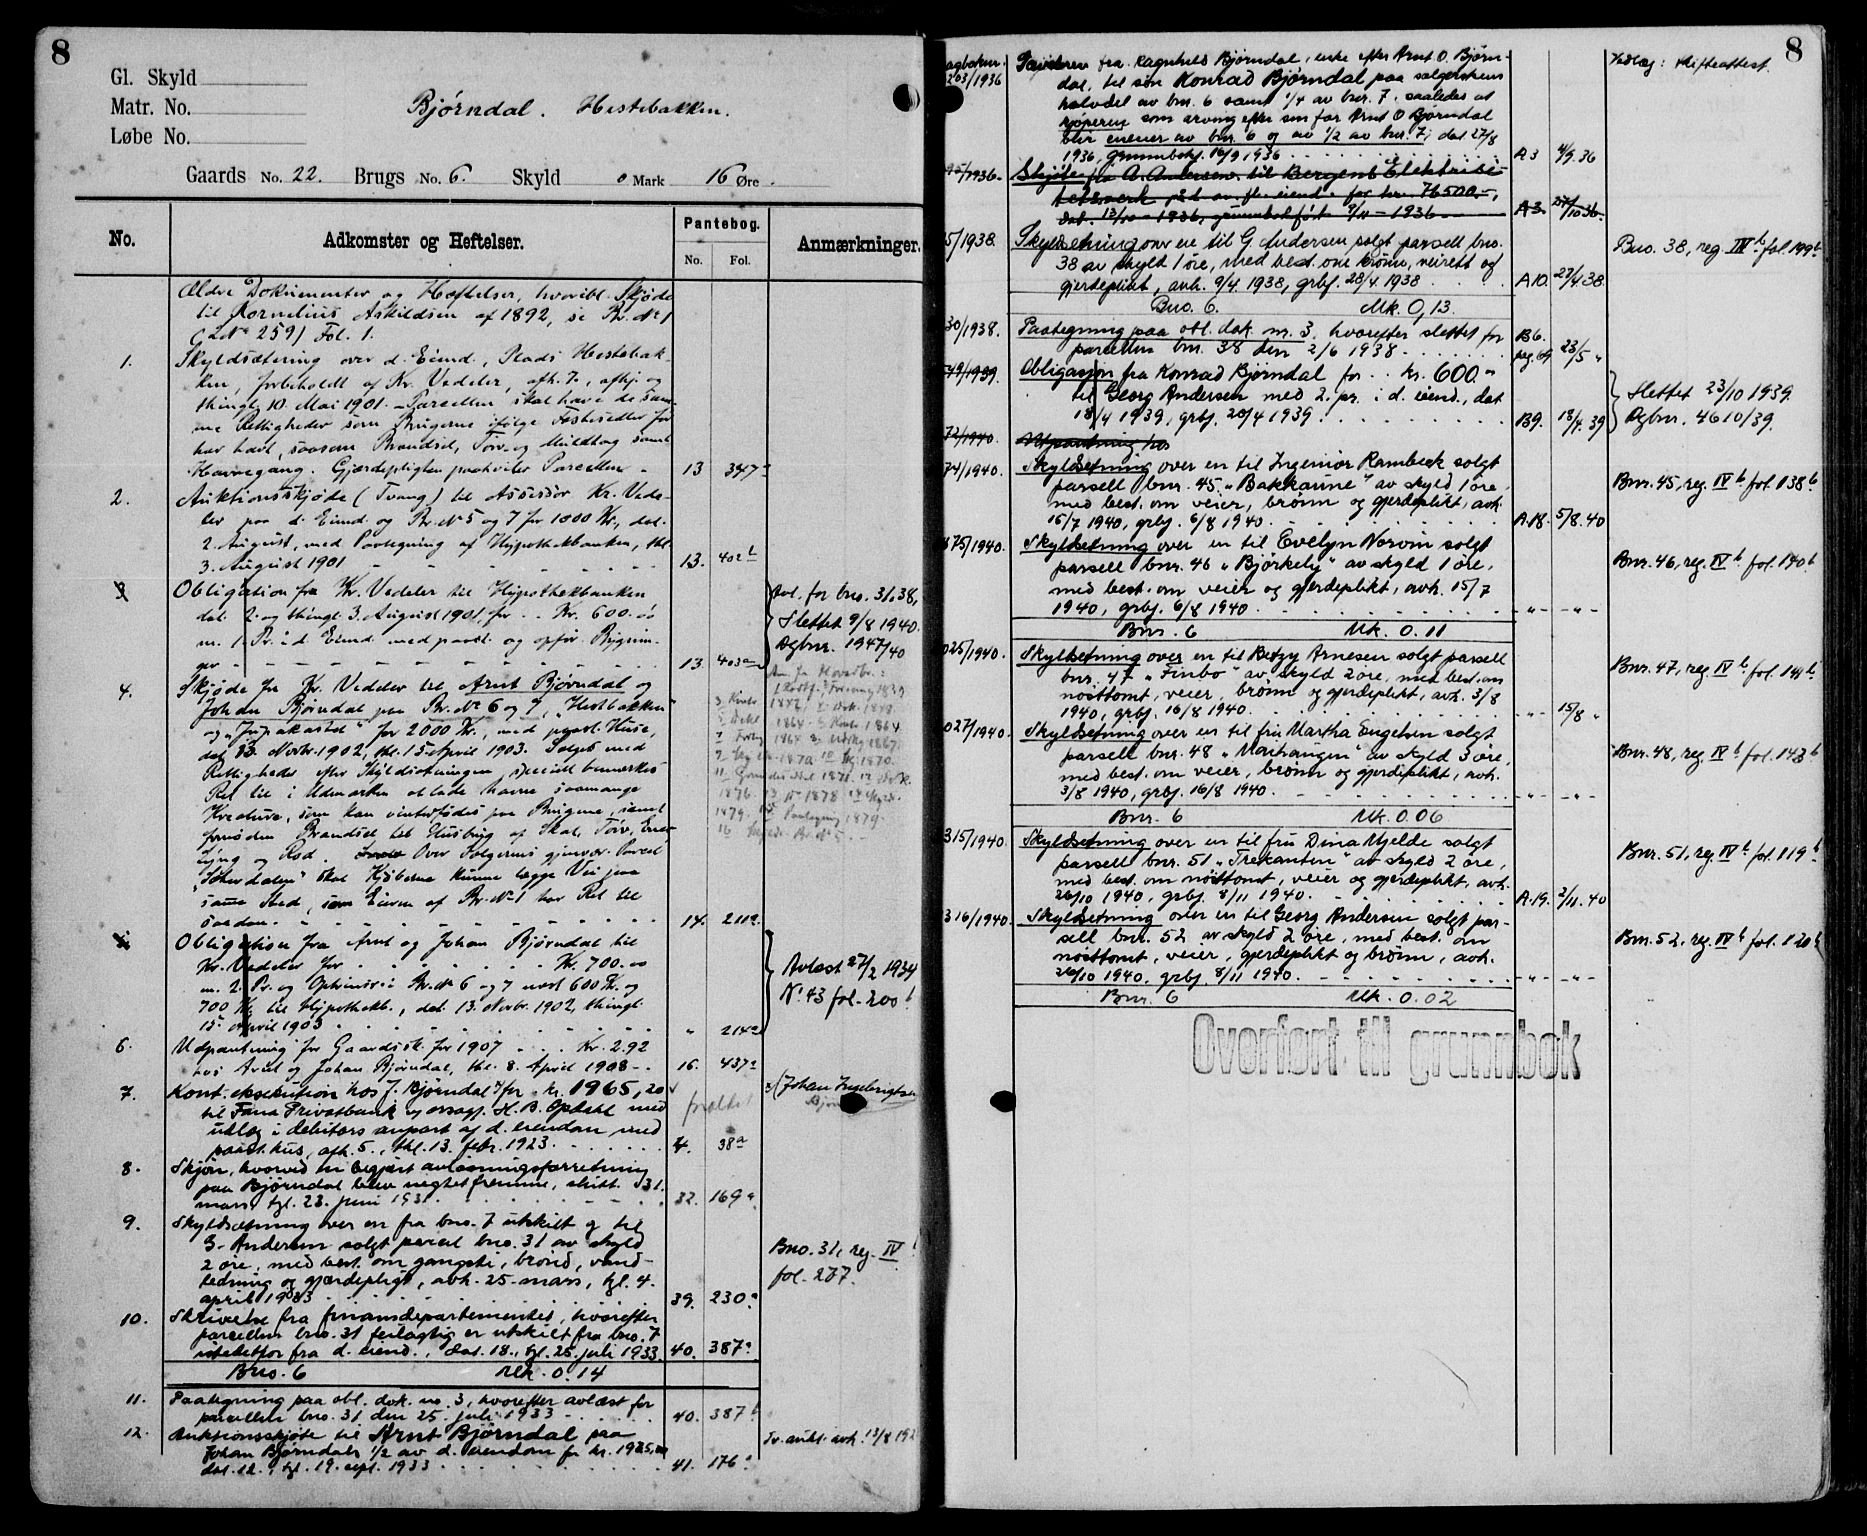 8
Gl. Skyld
Matr. No.
Løbe No.
Bjørndal. Hestebakken.
Gaards No. 22. Brugs No. 6. Skyld 0 Mark 16 Øre.
No. Adkomster og Heftelser. Pantebog. No. Fol. Anmærkninger.
Ældre Dokumenter og Heftelser, hvoribl. Skjøde
til Kornelius Askildsen af 1892, se Br. No 1
(LNo 259) Fol. 1.
1. Skyldsætning over d. Eiend., Plads Hestebak-
ken, forbeholdt af Kr. Vedeler, afh. 7., afhj. og
thingl. 10. Mai 1901. - Parcellen skal have de sam-
me Rettigheder som Brugerne ifølge Festesedler før
har havt, saasom Brændsel, Torv og Muldtag samt
Havnegang. Gjærdepligten paahviler Parcellen. 13 347a
2. Auktionsskjøde (Tvang) til Assessor Kr. Vede-
ler paa d. Eiend. og Br. No 5 og 7 for 1000 Kr., dat.
2. August, med Paategning af Hypothekbanken, thl.
3. August 1901 13. 402b
3 Obligation fra Kr. Vedeler til Hypothekbanken
dat. 2. og thingl. 3. August 1901, for . . Kr. 600.00
m. 1. Pr. i d. Eiend. med paast. og opfør. Bygnin-
ger 13 403a
Avl. for bno. 31, 38,
Slettet 9/8 1940.
Dgbnr. 1947/40
4. Skjøde fra Kr. Vedeler til Arnt Bjørndal og
Johan Bjørndal paa Br. No 6 og 7, "Hestbakken"
og "Jegakastet" for 2000 Kr., med paast. Huse,
dat. 13. Novbr. 1902, thl. 15 April 1903. Sælges med
Rettigheder efter Skyldsætningen, specielt bemærkes
Ret til i Udmarken at lade havne saamange
Kreature, som kan vinterfødes paa Brugene, samt
fornøden Brændsel til Husbrug af Skat, Torv, Ener
Lyng og Rod. Over Sælgerens gjenvær. Parcel
skal Kjøberne kunne lægge Vei paa
samme Sted, som Eieren af Br. No 1 har Ret til
saadan. 14. 211a
5 Obligation fra Arnt og Johan Bjørndal til
Kr. Vedeler for Kr. 700.00
m. 2. Pr. og Opbrinor i Br. No 6 og 7 næst 600 Kr. og
700 Kr. til Hypothekb., dat. 13. Novbr. 1902, thingl.
15. April 1903 " 214a
Avlæst 27/2 1934
No. 43 fol. 200b
6. Udpantning for Gaardsk. for 1907 . . . Kr. 2.92
hos Arnt og Johan Bjørndal, thl. 8. April 1908 16. 437a
7. Kont. eksekution hos J. Bjørndal x) for kr. 1965,20
til Fana Privatbank og orsagf. H. B. Opdahl med
udlæg i debitors anpart af d. eiendom med
paast. hus, afh. 5., thl. 13. febr. 1923. 24. 38a
forældet
x) Johan Ingebrigtsen
8. Skjøn, hvorved en begjært avløsningsforretning
paa Bjørndal blev negtet fremme, slutt. 31.
mars, tgl. 23. juni 1931 32. 169a
9. Skyldsætning over en fra bno. 7 utskilt og til
G. Andersen solgt parcel bno. 31 av skyld
2 øre, med best. om gangsti, brønd, vand-
ledning og gjærdepligt, avh. 25. mars, tgl. 4.
april 1933 39. 230a
Bno. 31, reg. IV b
fol. 207.
10. Skrivelse fra finansdepartementet, hvorefter
parcellen bno. 31 feilagtig er utskilt fra bno. 7
istedetfor fra d. eiend., dat. 18., tgl. 25. juli 1933. 40. 387a
Bno. 6 Mk. 0.14
11. Paategning paa obl. dok. no. 3, hvorefter avlæst for
parcellen bno. 31 den 25. juli 1933 40. 387b
12. Auktionsskjøte til Arnt Bjørndal paa
Johan Bjørndals 1/2 av d. eiendom for kr. 1925,00
dat. 12., tgl. 19. sept. 1933 41. 176a
Tv. aukt. avh. 13/8 192
8
203/1936 fra Ragnhild Bjørndal, enke efter Arnt O. Bjørn-
dal, til søn Konrad Bjørndal paa sælgerskens
halvdel av bnr. 6 samt 1/4 av bnr. 7, saaledes at
kjøperen som arving efter sin far Arnt O Bjørndal
blir eneeier av bnr. 6 og av 1/2 av bnr. 7, dat 27/8
1936, grunnbokf. 16/9 1936 A3 4/9 36
Vedlæg: skifteattest.
95/1936. Skjøte fra A. Andersen til Bergens Elektrisi-
tetsverk på d. av. fl. eiend. for kr. 76500.-,
dat. 13/10 - 1936, grunnbokført 9/11 - 1936 A3. 27/10 36.
5/1938. Skyldsetning over en til G Andersen solgt parsell bno.
38 av skyld 1 øre, med best. om brønn, veirett og
gjerdeplikt, avh. 9/4 1938, grbf. 28/4 1938 A10. 27/4 38
Bno. 38, reg. IV b fol. 199b
Bno. 6. Mk. 0,13.
30/1938. Paategning paa obl. dok. nr. 3, hvorefter slettet for
parsellen bnr. 38 den 2/6 1938 B6. pag. 69 23/5 "
549/1939. Obligasjon fra Konrad Bjørndal for . . kr. 600.-
til Georg Andersen med 2. pr. i d. eiend., dat
18/4 1939, grbf. 20/4 1939 B9. 18/4. 39
Slettet 23/10 1939.
Dgbnr. 4610/39.
72/1940. Utpantning hos
74/1940. Skyldsetning over en til Ingeniør Rambech solgt
parsell bnr. 45, "Bakkarine" av skyld 1 øre,
med best. om veier, brønn og gjerdeplikt, avh.
15/7 1940, grbf. 6/8 1940. A.18. 5/8. 40
Bnr. 45, reg. IV b fol. 138b
675/1940. Skyldsetning over en til Evelyn Norvin solgt
parsell bnr. 46 "Bjørkely" av skyld 1 øre,
med best. om veier og gjerdeplikt, avh. 15/7
1940, grbf. 6/8 1940 - " - - " -
Bnr. 46, reg. IV b fol. 140b
Bnr. 6 Mk. 0.11
025/1940. Skyldsetning over en til Betzy Arnesen solgt parsell
bnr. 47 "Finbo" av skyld 2 øre, med best. om
nøsttomt, veier, brønn og gjerdeplikt, avh. 3/8
1940, grbf. 16/8 1940. - " - 15/8 "
Bnr. 47, reg. IV b fol. 141b
027/1940. Skyldsetning over en til fru Martha Engelsen solgt
parsell bnr. 48 av skyld 3 øre,
med best. om veier, brønn og gjerdeplikt, avh.
3/8 1940, grbf. 16/8 1940. - " - - " -
Bnr. 48, reg. IV b fol. 143b
Bnr. 6 Mk. 0.06
315/1940. Skyldsetning over en til fru Dina Mjelde solgt
parsell bnr. 51 "Trekanten" av skyld 2 øre,
med best. om nøsttomt, veier og gjerdeplikt, avh.
26/10 1940, grbf. 8/11 1940. A.19. 2/11. 40
Bnr. 51, reg. IV b fol. 119b
316/1940. Skyldsetning over en til Georg Andersen solgt par-
sell bnr. 52 av skyld 2 øre, med best. om
nøsttomt, veier, gjerdeplikt og brønn, avh.
26/10 1940, grbf. 8/11 1940. - " - - " -
Bnr. 52, reg. IV b fol. 120b
Bnr. 6 Mk. 0.02
Overført til grunnbok